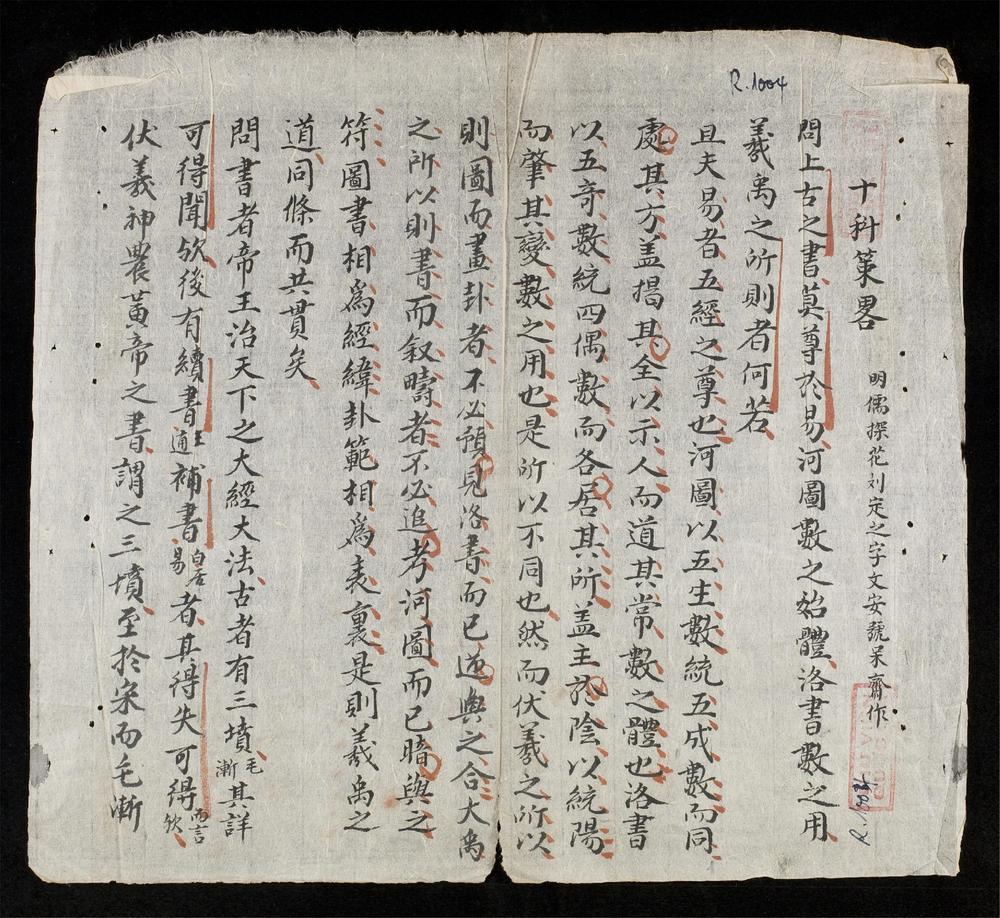 R.1004
十科策畧
明儒探花刘定之字文安號呆齋作
問上古之書莫尊於易河圖數之始體洛書數之用
羲禹之所則者何若
且夫易者五經之尊也河圖以五生數統五成數而同
處其方盖揭其全以示人而道其常數之體也洛書
以五奇數統四偶數而各居其所盖主於陰以統陽
而肇其變數之用也是所以不同也然而伏羲之所以
則圖而畫卦者不必預見洛書而已逆與之合大禹
之所以則書而叙疇者不必追考河圖而已暗與之
符圖書相爲經緯卦範相爲表裏是則羲禹之
道同條而共貫矣
問書者帝王治天下之大經大法古者有三墳毛漸其詳
可得聞欤後有續書王通補書白居易者其得失可得而言欤
伏義神農黃帝之書謂之三墳至於宋而毛漸
R.1004